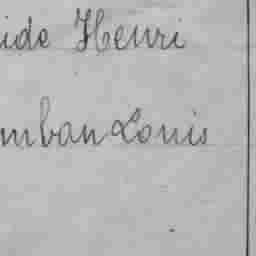 ide Henri
mban Louis